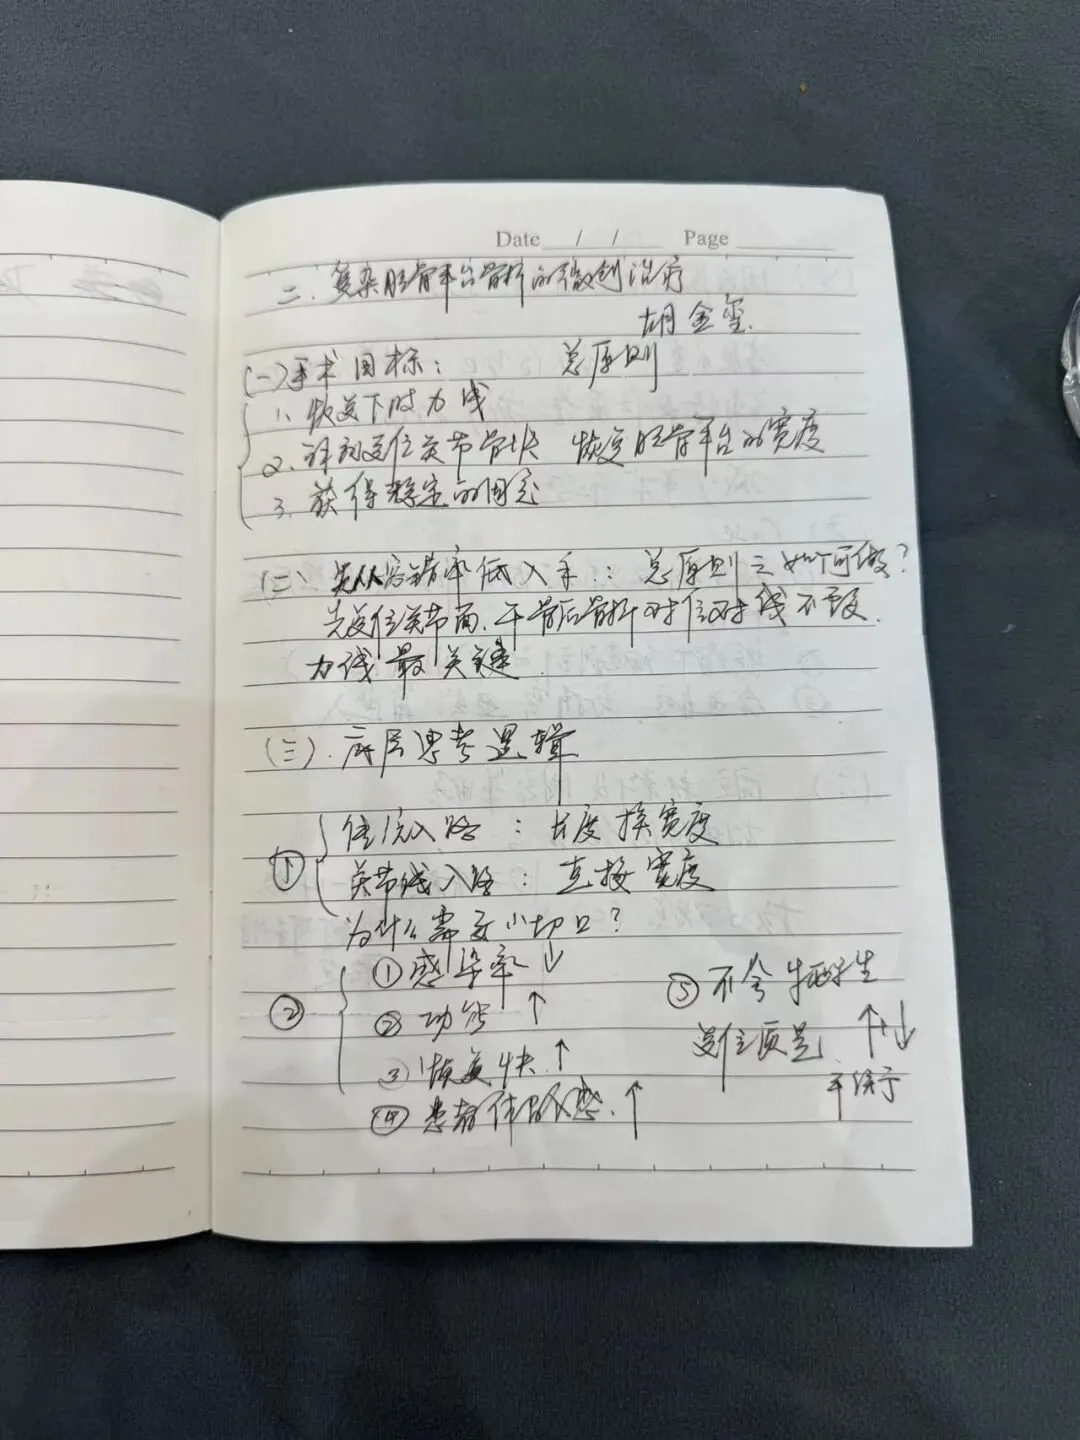 Date / / Page
二、复杂胫骨平台骨折的微创治疗
胡金玺
(一)手术目标: 总原则
1、恢复下肢力线
2、复位关节骨块 恢复胫骨平台的宽度
3、获得稳定的固定
(二)、先从容错率低入手: 总原则之如何做?
先复位关节面、干骺后骨折对位对线
力线最关键
(三).底层思考逻辑
① 传统入路:长度换宽度
关节线入路:直接宽度
为什么需要小切口?
② ①感染率↓
②功能↑
③恢复快↑
④患者体 感.↑
⑤不会牺牲
复位质量 ↑↓